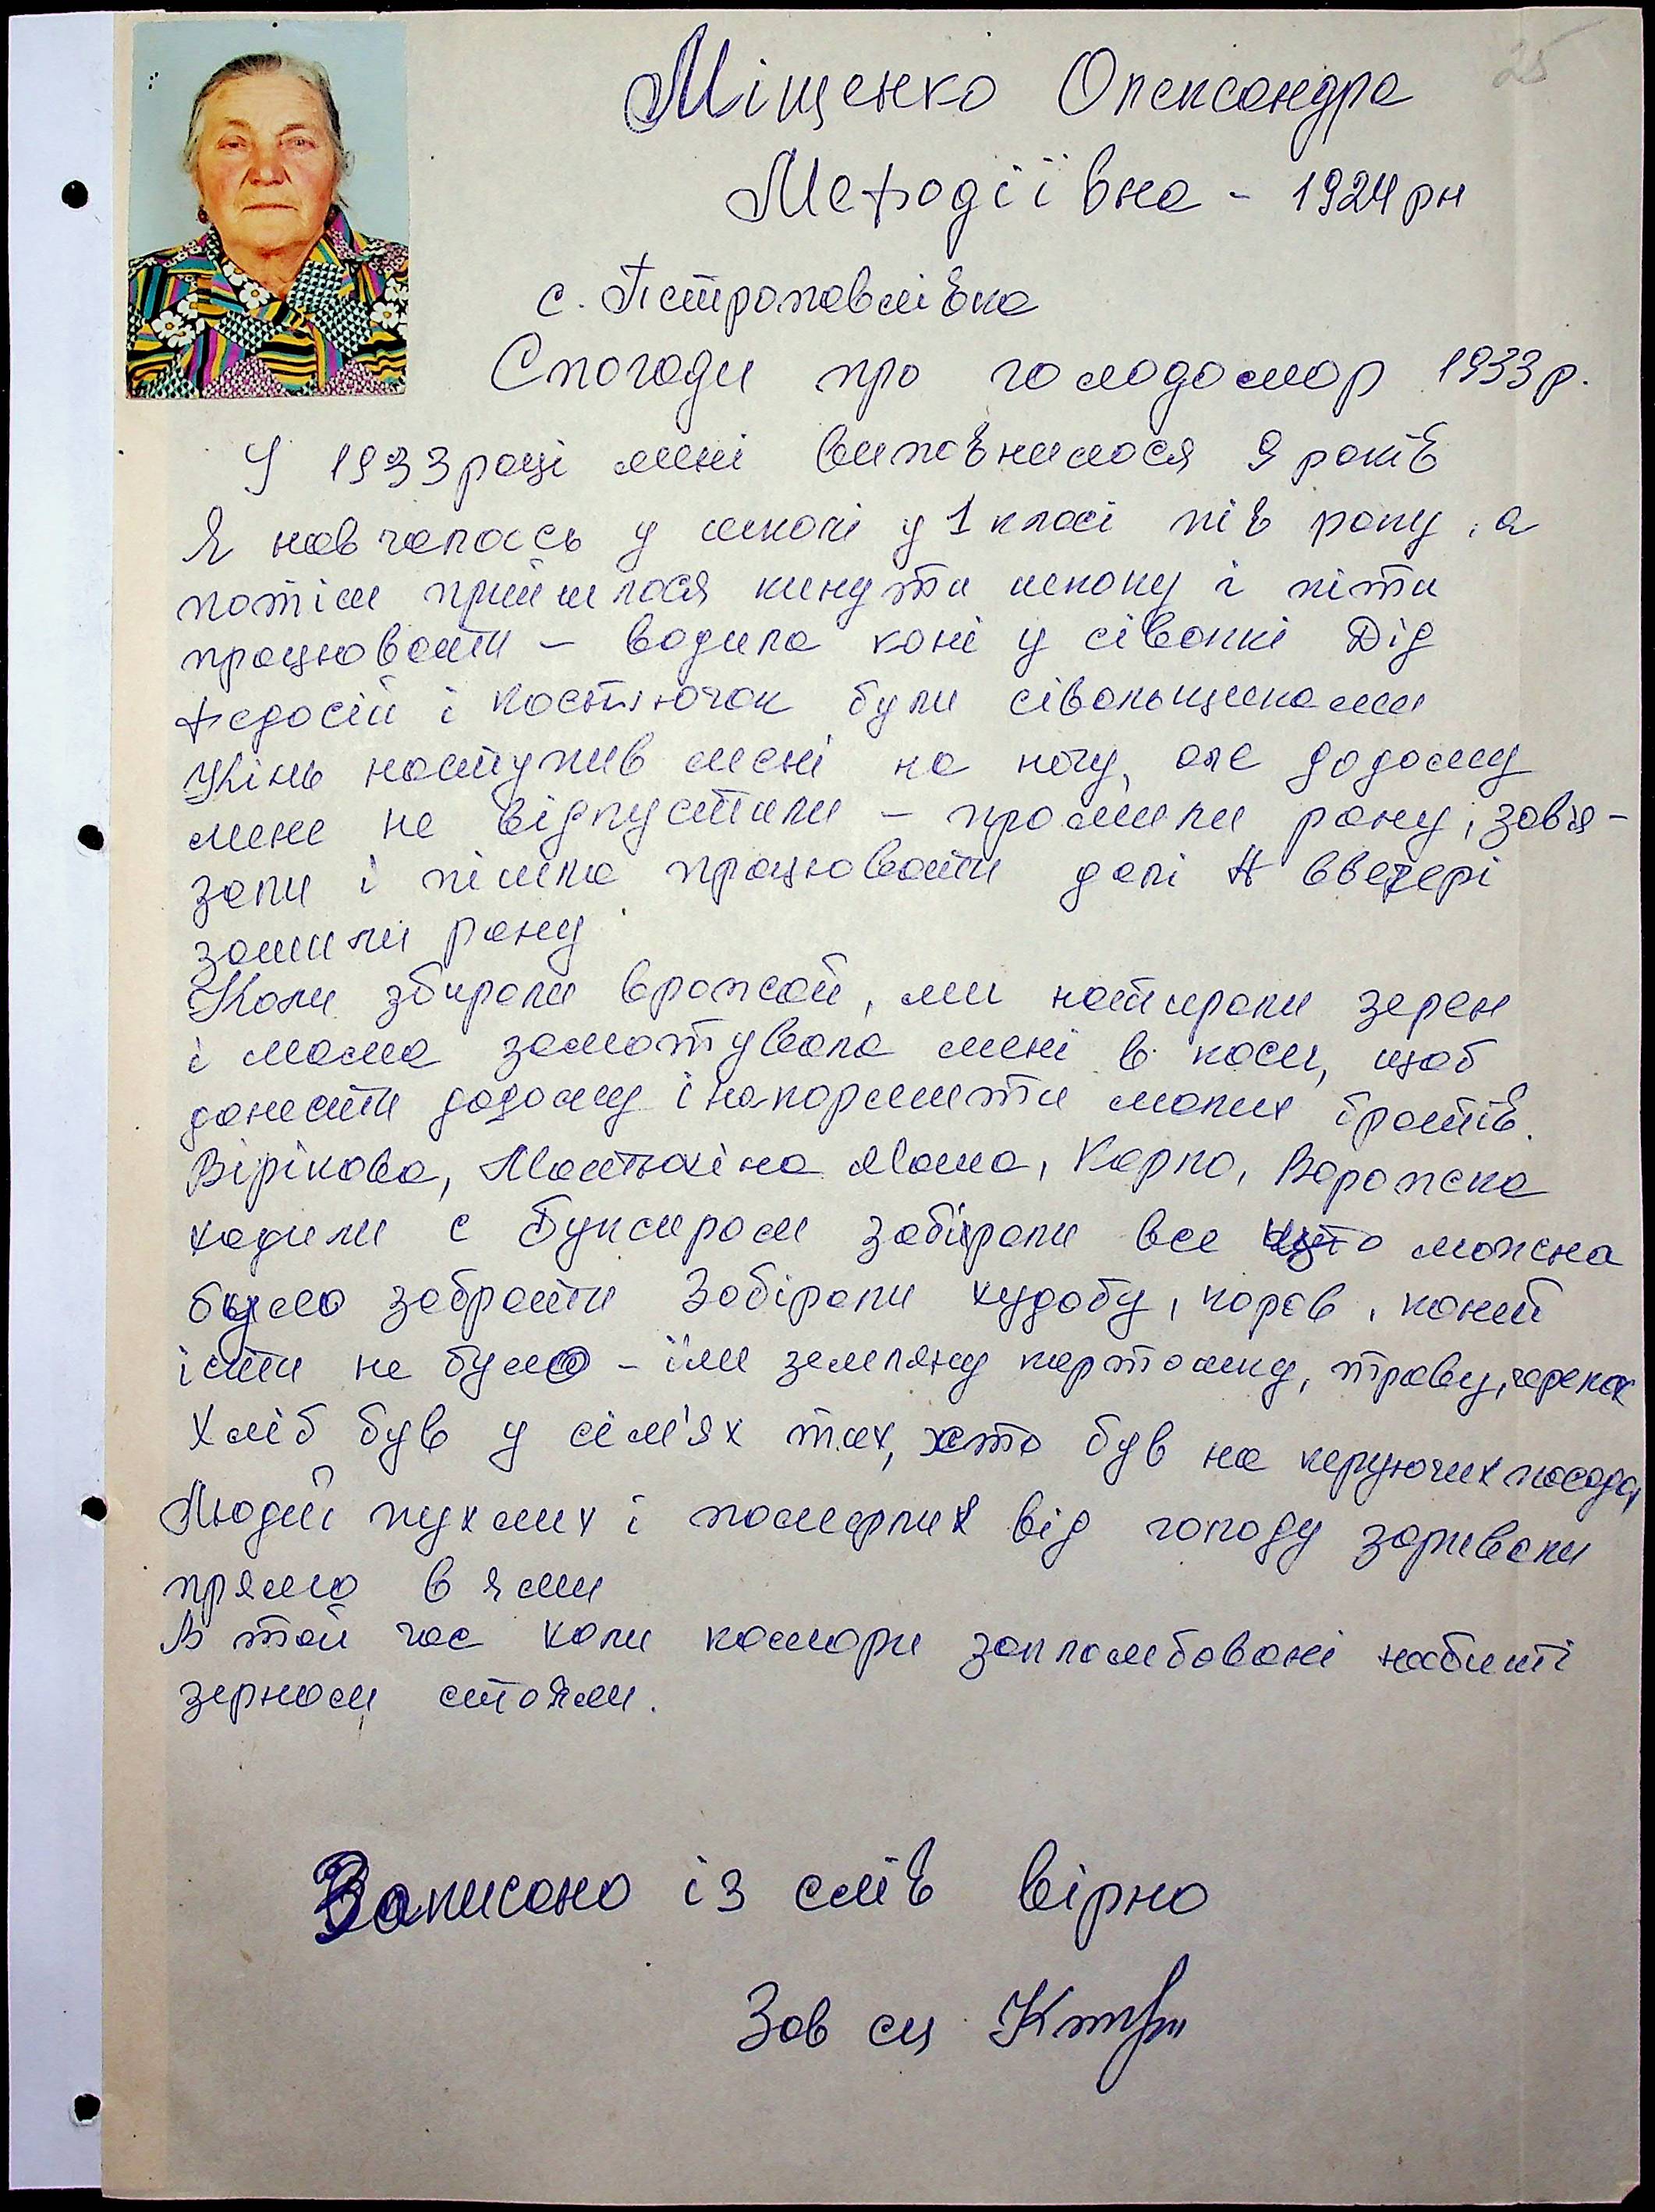 25
Міщенко Олександра
Мефодіївна - 1924 рн
с. Петропавлівка
Спогади про голодомор 1933 р.
У 1933 році мені виповнилося 9 років
Я навчалась у школі у 1 класі пів року, а
потім прийшлося кинути школу і піти
працювати - водила коні у сівалкі Дід
Федосій і Костючок були сівальщиками
Кінь наступив мені на ногу, але додому
мене не відпустили - промили рану, завя-
зали і пішла працювати далі А ввечері
зашили рану
Коли збирали врожай, ми натирали зерен
і мама замотувала мені в коси, щоб
донести додому і накормити малих братів.
Вірікова, Матюхіна Маша, Карпо, Ворожка
ходили с буксиром забірали все що можна
було забрати Забірали худобу, коров, коний
їсти не було - їли земляну картошку, траву, черепах
Хліб був у сім'ях тих, хто був на керуючих посадах
Людий пухлих і померлих від голоду заривали
прямо в ями
В той час коли комори запломбовані набиті
зерном стояли.
Записано із слів вірно
Зав сц